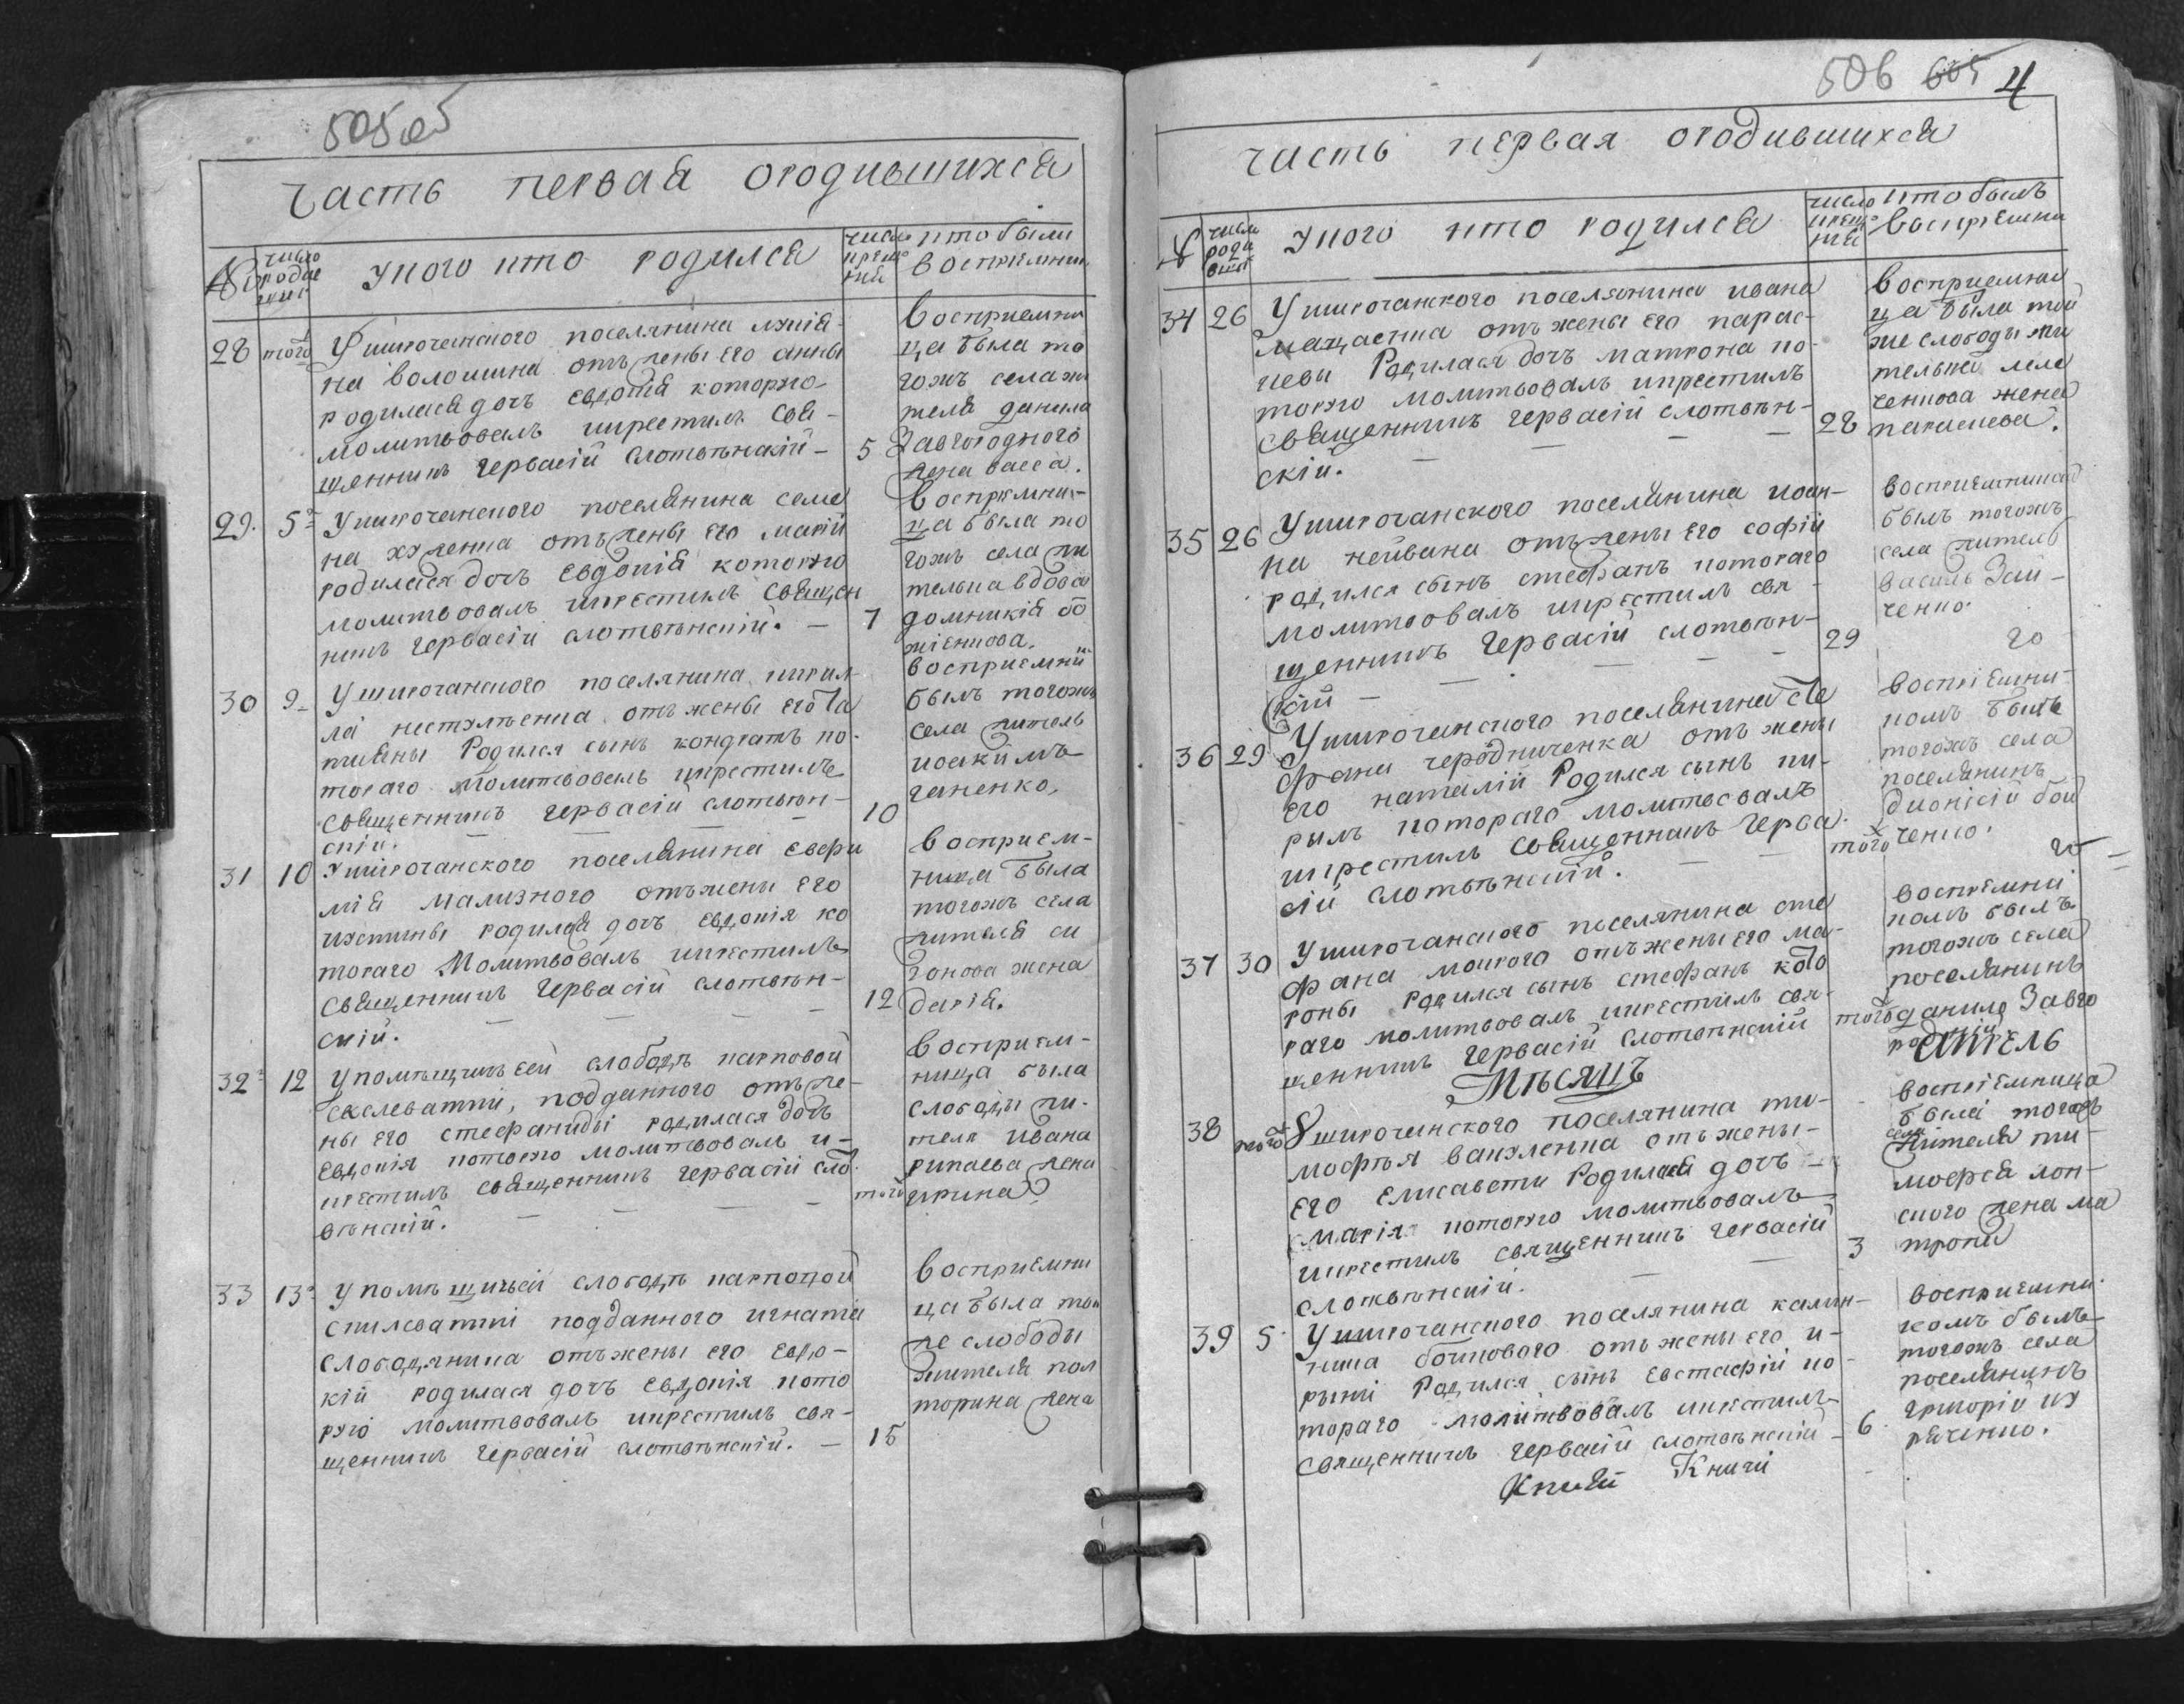 505 об
часть первая ородившихся
№
число
родив
ших
Укого кто родился
число
креще
ния
кто были
восприемники
28
того
Уширочанского поселянина лукія-
на волошина отъ жены его анны
родилася дочь евдокія которую
молитвовалъ икрестилъ свя-
щенникъ гервасій слотвѣнскій –
5
восприемни
ца была то
гожъ села жи
теля данила
Завгороднего
жена васса.
29.
5
Уширочанского поселянина семе
на отъ жены его маріи
родилася дочь Евдокія которую
молитвовалъ икрестилъ священ
никъ гервасій слотвѣнскій. –
7
восприемни-
ца была то
гожъ села жи
телька вдова
домникія
30
9
Уширочанского поселянина кирил
ла нестулѣенка отъ жены его та
тияны Родился сынъ кондратъ ко-
тораго молитвовалъ икрестилъ
священникъ гервасій слотвѣн-
скій.
10
восприемни
былъ тогожъ
села житель
иоакимъ
ганенко.
31
10
Уширочанского поселянина евфи
мія мализного отъ жены его
иустины родилася дочь евдокія ко
тораго молитвовалъ икрестилъ
священникъ гервасій слотвѣн-
скій.
12
восприем-
ница была
тогожъ села
жителя си
жена
дарія.
32
12
Упомѣщичьей слободѣ карповой
подданного отъ же-
ны его стефаниды родилася дочь
евдокія которую молитвовалъ и-
крестилъ священникъ гервасій слот
вѣнскій.
того
восприем-
ница была
слободы жи-
теля ивана
рипаева жена
ирина
33
13
Упомѣщичьей слободѣ карповой
подданного игнатія
слободяника отъ жены его евдо-
кіи родилася дочь евдокія кото
рую молитвовалъ икрестилъ свя-
щенникъ гервасій слотвѣнскій. –
15
восприемни
ца была той
же слободы
жителя пол
торина жена
506 605 4
часть первая ородившихся
№
числ
роди
вших
Укого кто родился
число
креще
ния
кто былъ
восприемни
34
26
Уширочанского поселянина ивана
мацаенка отъ жены его парас-
кевы Родилася дочь матрона ко-
торую молитвовалъ икрестилъ
священникъ гервасій слотвѣн-
скій.
28
восприемни
ца была той
же слободы жи
телька
жена
параскева.
35
26
Уширочанского поселянина иоан-
на нейвана отъ жены его софіи
родился сынъ стефанъ котораго
молитвовалъ икрестилъ свя-
щенникъ гервасій слотвѣн-
скій
29
восприемникъ
былъ тогожъ
села житель
василь Зай-
ченко.
36
29
Уширочанского поселянина сте
фана чередниченка отъ жены
его наталіи Родился сынъ ки-
рилъ котораго молитвовалъ
икрестилъ священникъ герва-
сій слотвѣнскій.
того
восприемни-
комъ былъ
тогожъ села
поселянинъ
дионисій бой
ченко.
37
30
Уширочанского поселянина сте
фана мокрого отъ жены его ма-
роны Родился сынъ стефанъ кото
раго молитвовалъ икрестилъ свя-
щенникъ гервасій слотвѣнскій
того
восприемни
комъ былъ
тогожъ села
поселянинъ
данило Завго
родній
Мѣсяцъ
апрель
38
того
Уширочанского поселянина ти-
мофѣя вакуленка отъ жены-
его елисаветы Родилася дочь –
марія которую молитвовалъ
икрестилъ священникъ гервасій
слотвѣнскій.
3
восприемница
была тогожъ
села
жителя ти-
мофея лон-
ского жена ма
трона
39
5
Уширочанского поселянина калин-
ника бойкового отъ жены его и-
рины Родился сынъ евстафій ко-
тораго молитвовалъ икрестилъ
священникъ гервасій слотвѣнскій –
6
восприемни-
комъ былъ
тогожъ села
поселянинъ
григорій ку
рченко.
Книги